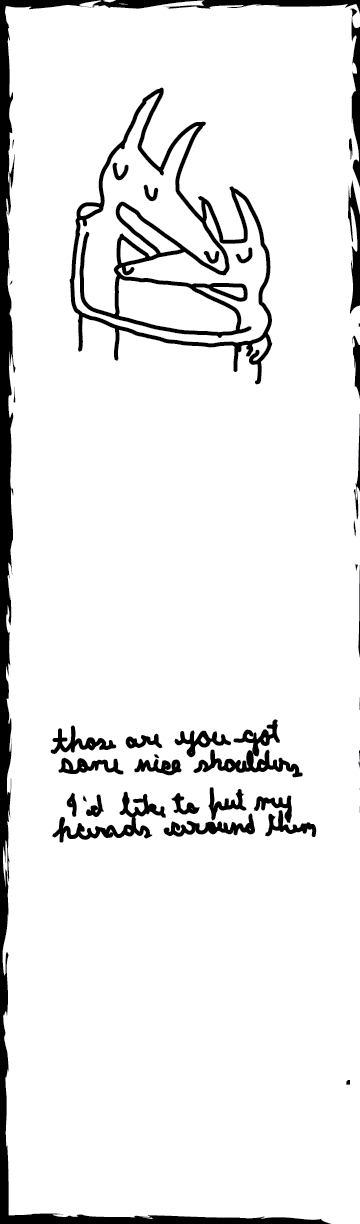 those are you got
some nice shoulders
I'd like to put my
hands around them